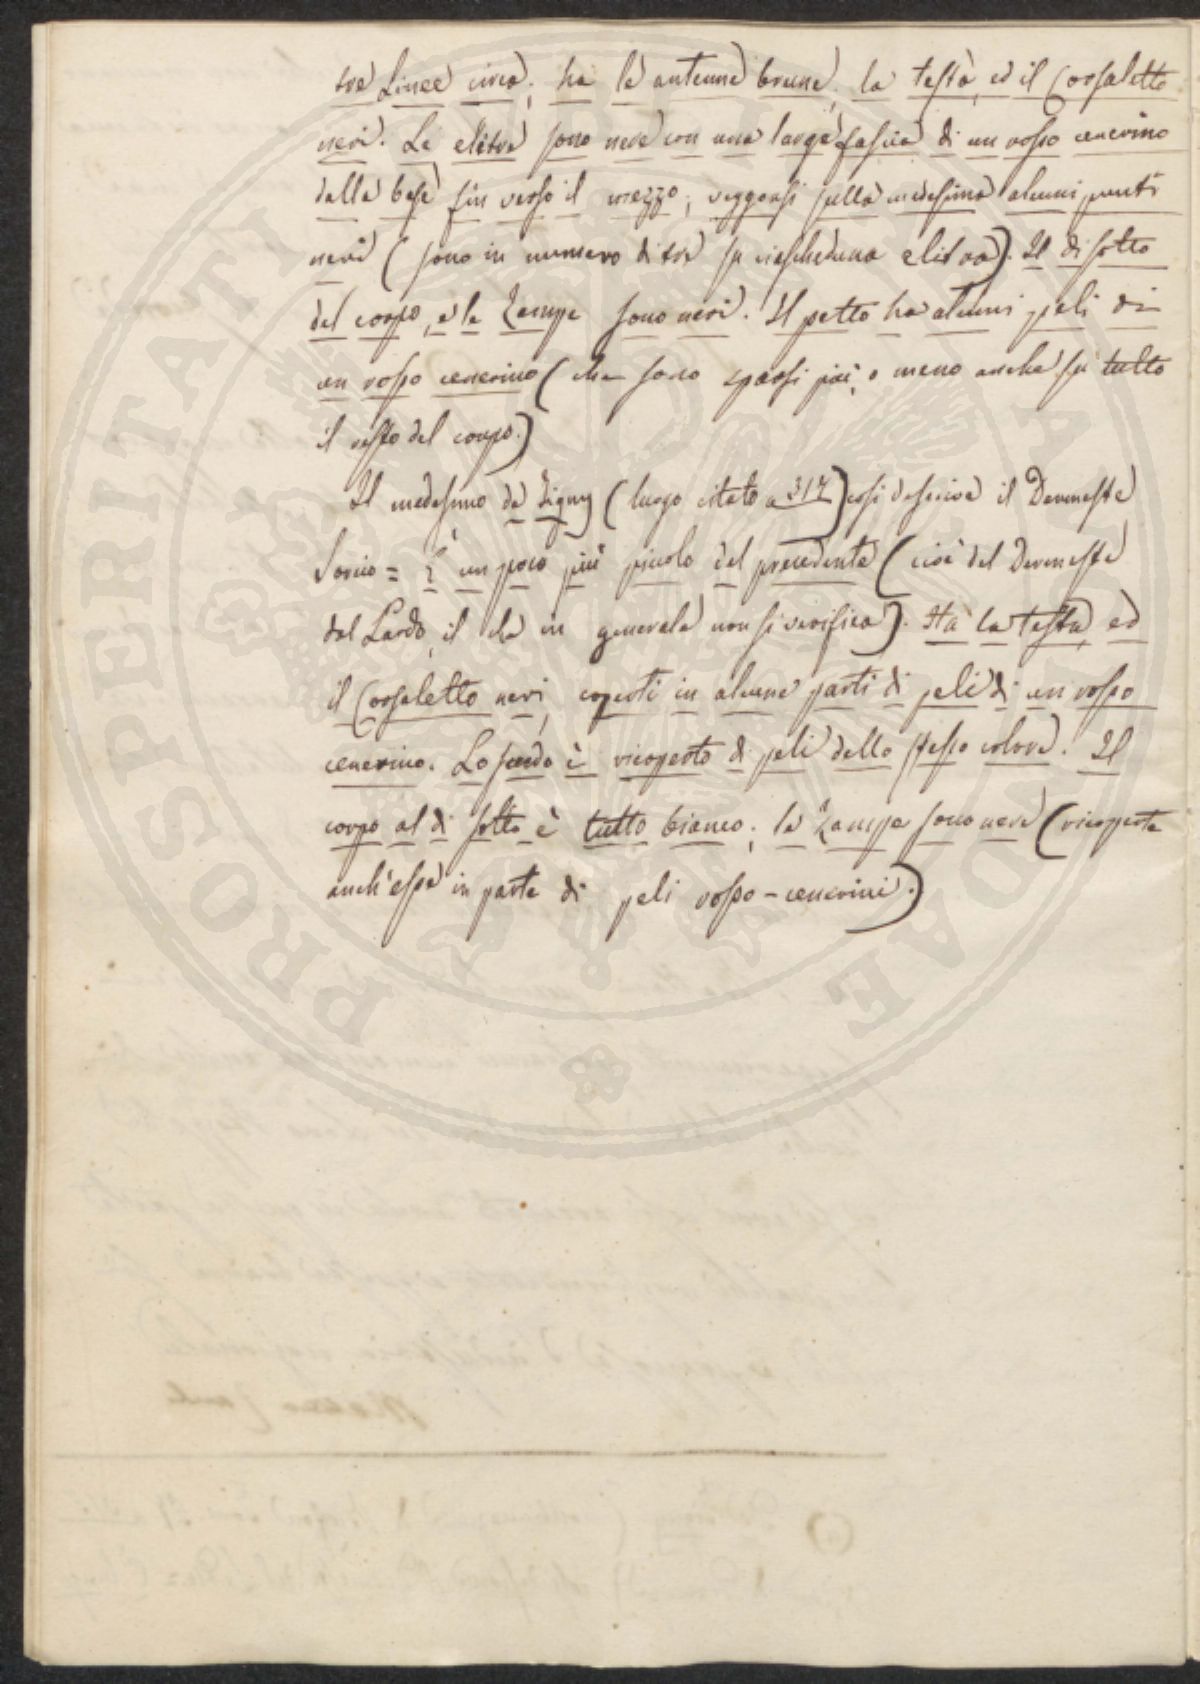 tre Linee circa; ha le antenne brune; la testa, ed il Corsaletto
neri. Le elitre sono nere con una larga fascia di un rosso cenerino
dalla base fin verso il mezzo; veggonsi sulla medesima alcuni punti
neri (sono in numero di tre su ciascheduna elitra). Il di sotto
del corpo, e le Zampe sono neri. Il petto ha alcuni peli di
un rosso cenerino (che sono sparsi più, o meno anche su tutto
il resto del corpo.)
Il medesimo de Tigny (luogo citato a 317) così descrive il Dermeste
Sorcio = È un poco più piccolo del precedente (cioè del Dermeste
del Lardo, il che in generale non si verifica). Ha la testa, ed
il Corsaletto neri, coperti in alcune parti di peli di un rosso
cenerino. Lo scudo è ricoperto di peli dello stesso colore. Il
corpo al di sotto è tutto bianco; le Zampe sono nere (ricoperte
anch'esse in parte di peli rosso-cenerini.)
PROSPERITATI
AE